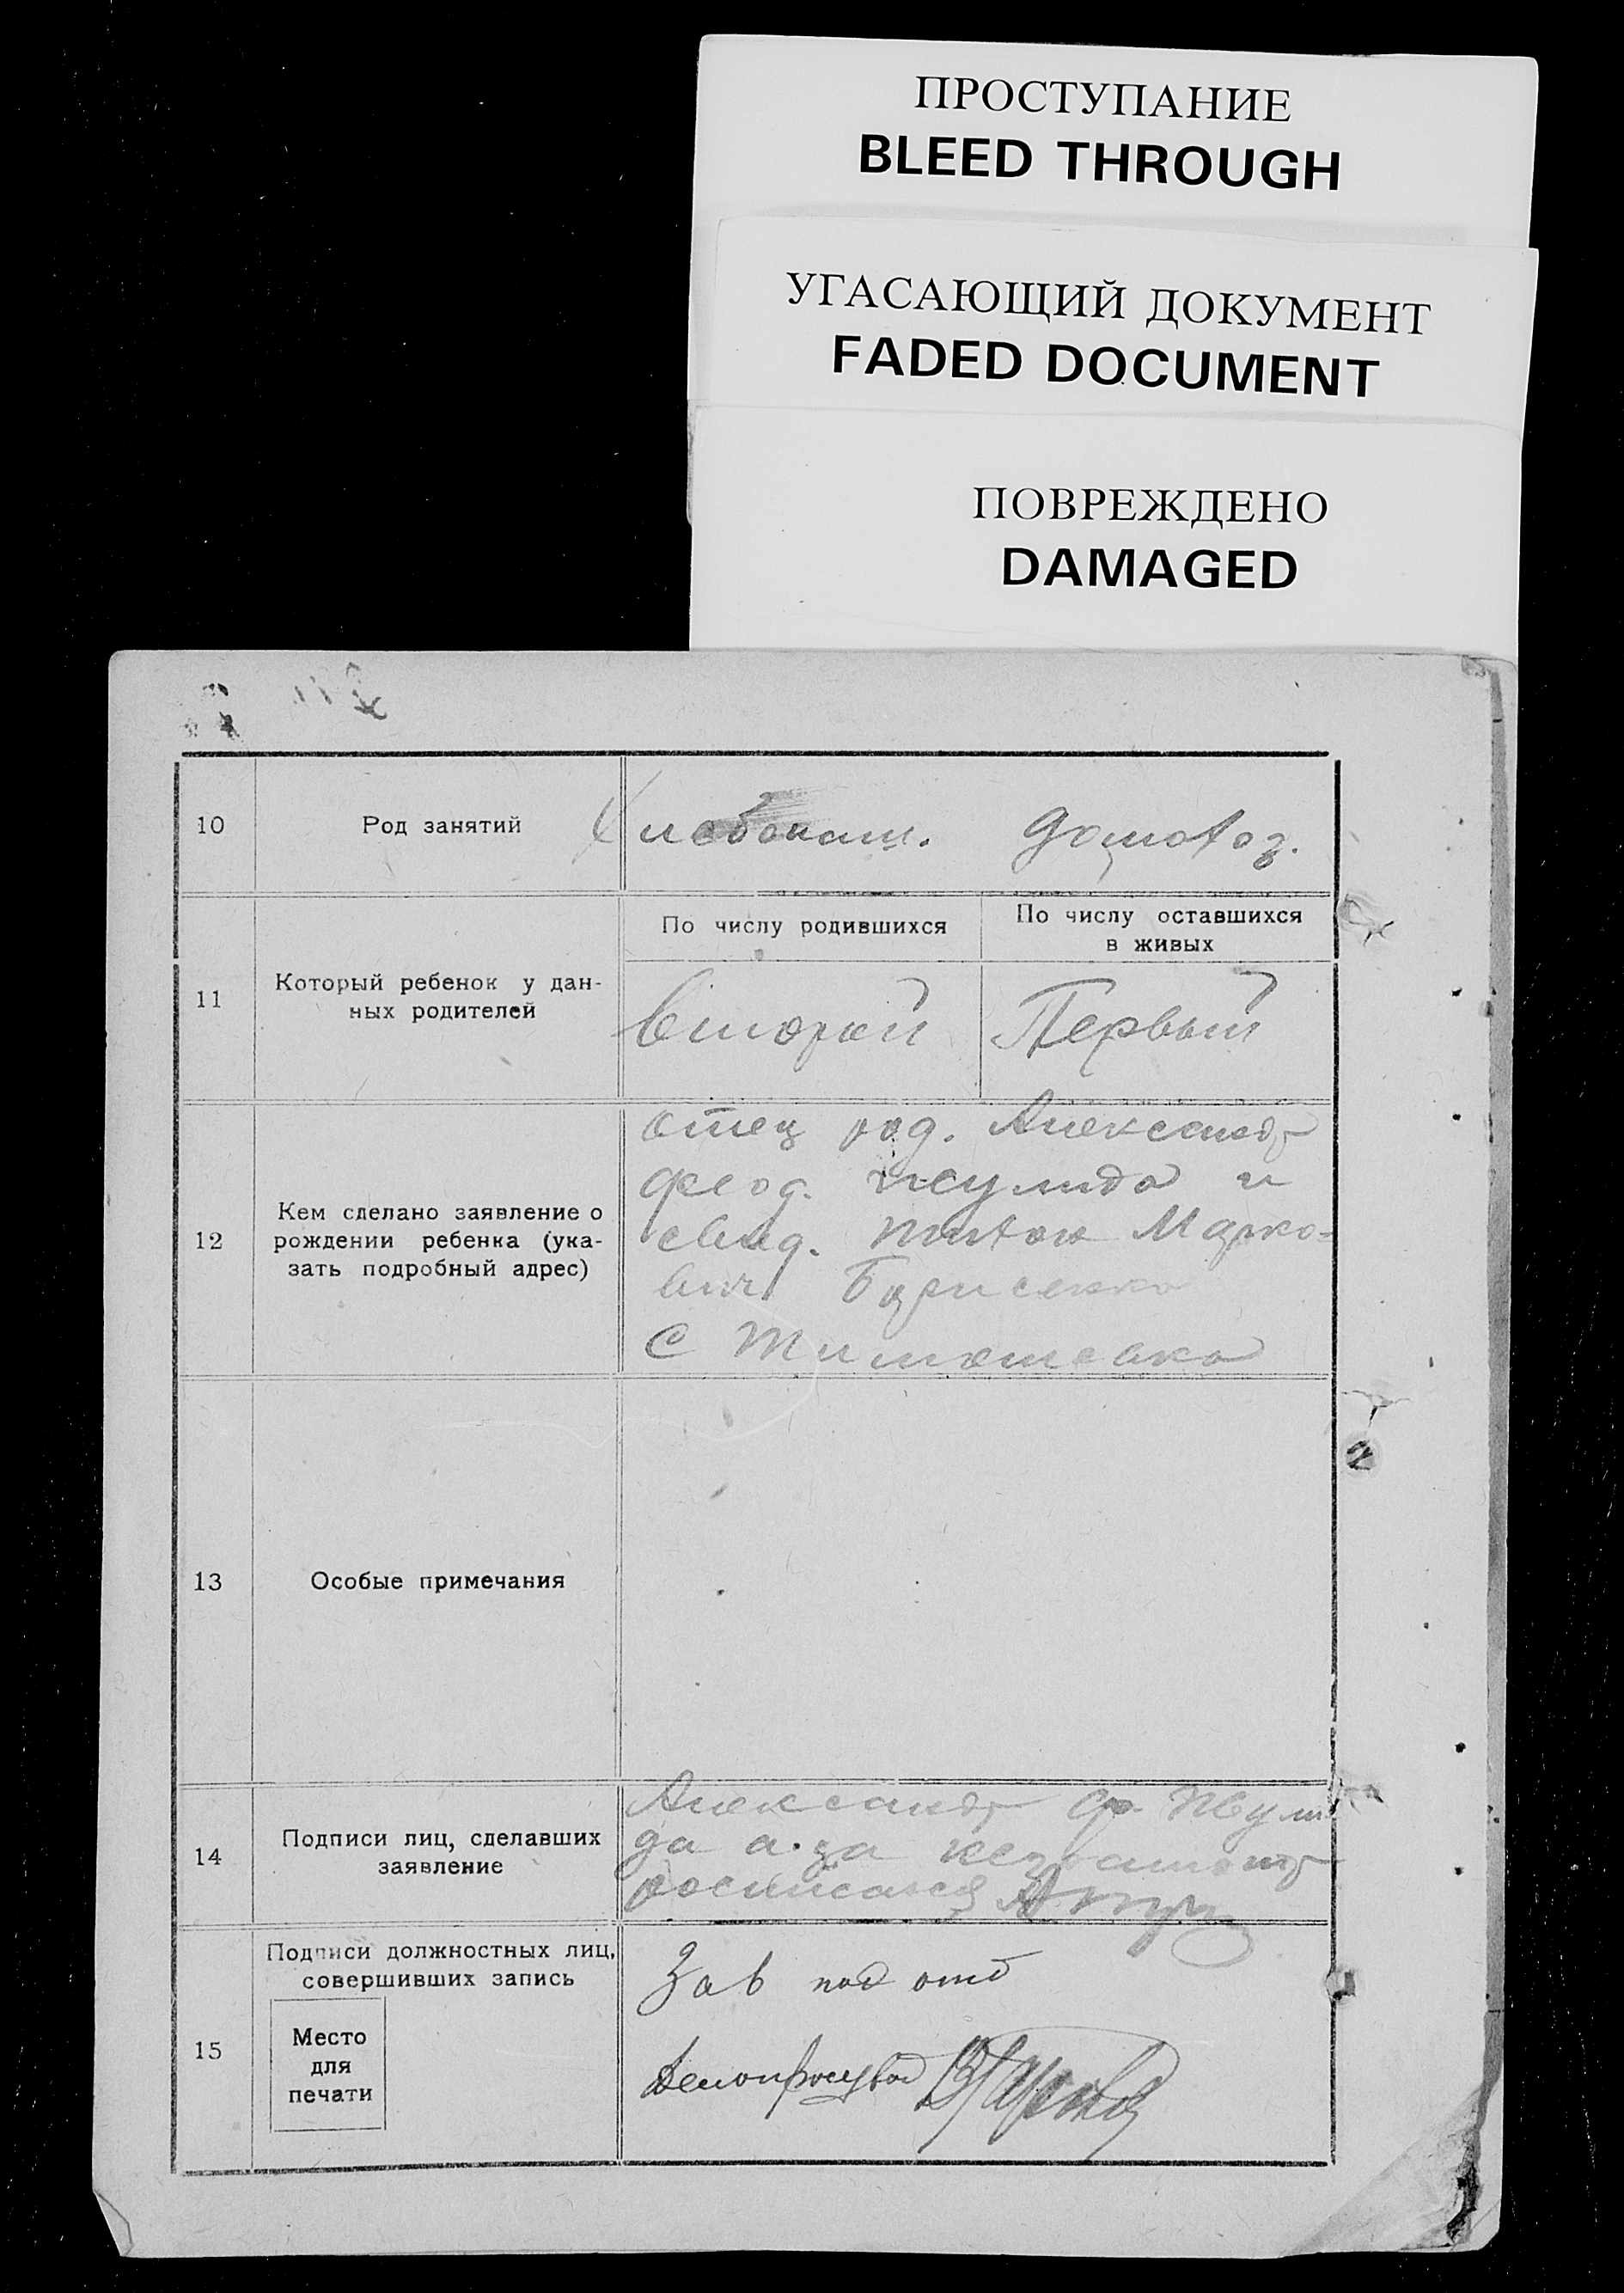 ПРОСТУПАНИЕ
BLEED THROUGH
УГАСАЮЩИЙ ДОКУМЕНТ
FADED DOCUMENT
ПОВРЕЖДЕНО
DAMAGED
10 Род занятий Хлебопаш. Домохоз.
По числу родившихся По числу оставшихся
в живых
11 Который ребенок у дан-
ных родителей
второй Первый
12 Кем сделано заявление о
рождении ребенка (ука-
зать подробный адрес)
отец род. Александр
Феод. и
свид. Марко-
вич Борисенко
С Тимошевка
13 Особые примечания
14 Подписи лиц, сделавших
заявление
Александр Ф.
да а за
росписался
15 Подписи должностных лиц,
совершивших запись
Место
для
печати
Зав под отд
Делопроизвод